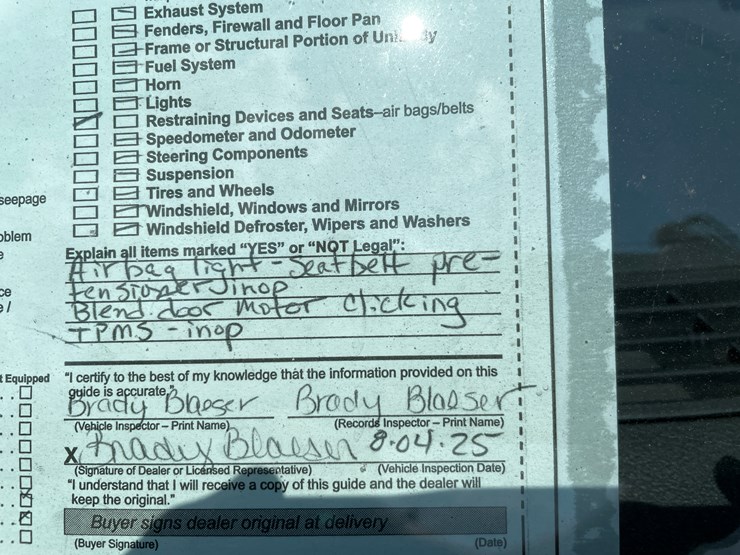 Exhaust System
Fenders, Firewall and Floor Pan
Frame or Structural Portion of Uni dy
Fuel System
Horn
Lights
Restraining Devices and Seats–air bags/belts
Speedometer and Odometer
Steering Components
Suspension
Tires and Wheels
seepage
Windshield, Windows and Mirrors
Windshield Defroster, Wipers and Washers
oblem
Explain all items marked “YES” or “NOT Legal”:
Air bag light - Seatbelt pre-
tensioner inop
Blend door motor clicking
TPMS - inop
"I certify to the best of my knowledge that the information provided on this
guide is accurate."
t Equipped
Brady Blaeser Brady Blaeser
(Vehicle Inspector – Print Name) (Records Inspector – Print Name)
X Brady Blaeser 8.04.25
(Signature of Dealer or Licensed Representative) (Vehicle Inspection Date)
"I understand that I will receive a copy of this guide and the dealer will
keep the original."
Buyer signs dealer original at delivery
(Buyer Signature) (Date)